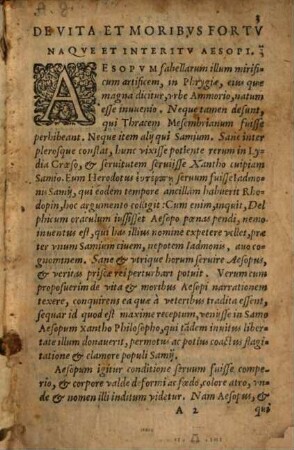 3
DE VITA ET MORIBVS FORTV
NAQVE ET INTERITV AESOPI.
AESOPVM fabellarum illum mirifi
cum artificem, in Phrygiæ, eius quæ
magna dicitur, vrbe Ammorio, natum
esse inuenio. Neque tamen desunt,
qui Thracem Mesembrianum fuisse
perhibeant. Neque item alij qui Samium. Sane inter
plerosque constat, hunc vixisse potiente rerum in Ly
dia Crœso, & seruitutem seruisse Xantho cuipiam
Samio. Eum Herodotus seruum fuisse Iadmo
nis Samij, qui eodem tempore ancillam habuerit Rho
dopin, hoc argumento colligit: Cum enim, inquit, Del
phicum oraculum iussisset Aesopo pœnas pendi, nemo
inuentus est, qui has illius nomine expetere vellet, præ
ter vnum Samiem ciuem, nepotem Iadmonis, auo co
gnominem. Sane & vtrique horum seruire Aesopus,
& veritas priscæ rei perturbari potuit. Verum cum
proposuerim de vita & moribus Aesopi narrationem
texere, conquirens ea quæ à veteribus tradita essent,
sequar id quod est maxime receptum, venisse in Samo
Aesopum Xantho Philosopho, qui tādem inuitus liber
tate illum donauerit, permotus ac potius coactus flagi
tatione & clamore populi Samij.
Aesopum igitur conditione seruum fuisse, compe
rio, & corpore valde deformi ac fœdo, colore atro, vn
de & nomen illi inditum videtur. Nam Aesopus, &
A 2 quo